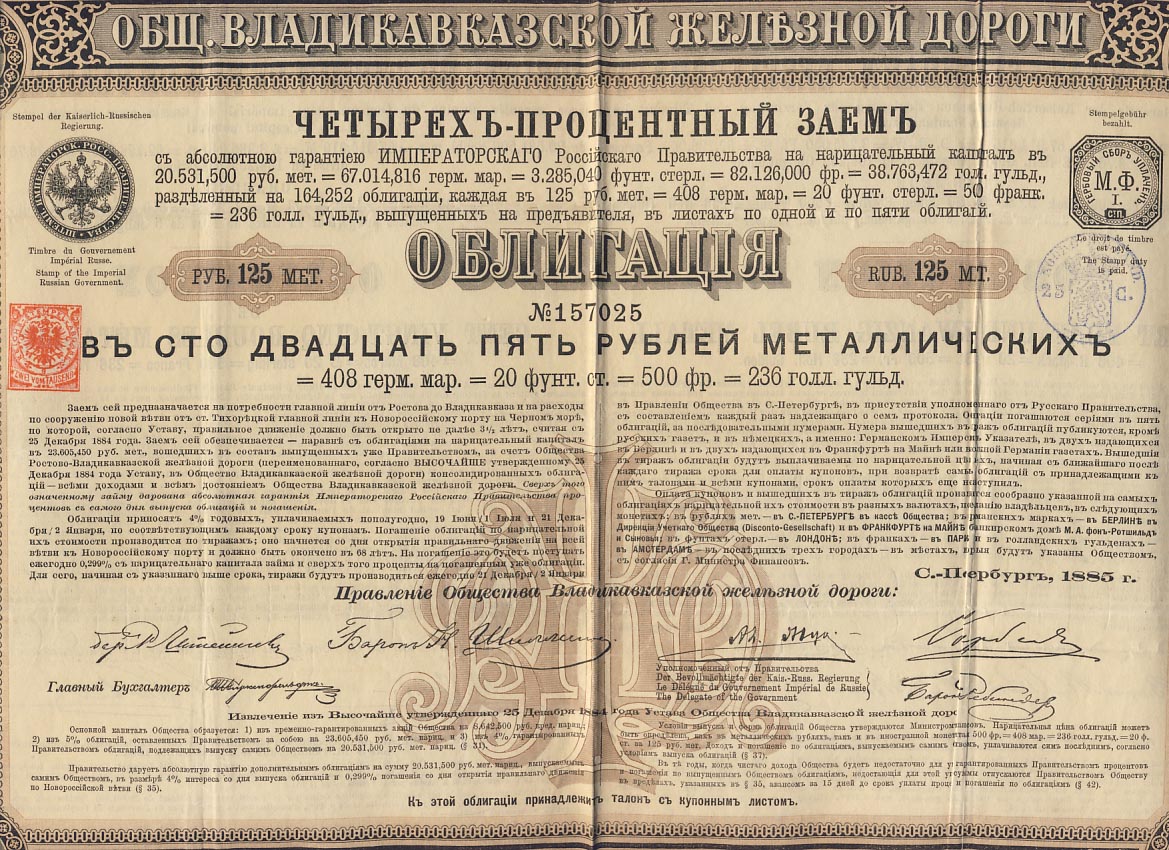 ОБЩ. ВЛАДИКАВКАЗСКОЙ ЖЕЛѢЗНОЙ ДОРОГИ
Stempel der Kaiserlich-Russischen
Regierung.
Timbre du Gouvernement
Impérial Russe.
Stamp of the Imperial
Russian Government.
Stempelgebühr
bezahlt.
ГЕРБОВЫЙ СБОРЪ УПЛАЧЕНЪ
М.Ф.
I.
СПб.
Le droit de timbre
est payé.
The Stamp duty
is paid.
25 C.
ЧЕТЫРЕХЪ-ПРОЦЕНТНЫЙ ЗАЕМЪ
съ абсолютною гарантіею ИМПЕРАТОРСКАГО Россійскаго Правительства на нарицательный капиталъ въ
20.531,500 руб. мет. = 67.014,816 герм. мар. = 3.285,040 фунт. стерл. = 82.126,000 фр. = 38.763,472 гол. гульд.,
раздѣленный на 164,252 облигаціи, каждая въ 125 руб. мет. = 408 герм. мар. = 20 фунт. стерл. = 50 франк.
= 236 голл. гульд., выпущенныхъ на предъявителя, въ листахъ по одной и по пяти облигацій.
ОБЛИГАЦІЯ
РУБ. 125 МЕТ.
RUB. 125 MT.
№157025
ZWEI VOM TAUSEND
ВЪ СТО ДВАДЦАТЬ ПЯТЬ РУБЛЕЙ МЕТАЛЛИЧЕСКИХЪ
= 408 герм. мар. = 20 фунт. ст. = 500 фр. = 236 голл. гульд.
Заемъ сей предназначается на потребности главной линіи отъ Ростова до Владикавказа и на расходы
по сооруженію новой вѣтви отъ ст. Тихорѣцкой главной линіи къ Новороссійскому порту на Черномъ морѣ,
по которой, согласно Уставу, правильное движеніе должно быть открыто не далѣе 3½ лѣтъ, считая съ
25 Декабря 1884 года. Заемъ сей обезпечивается — наравнѣ съ облигаціями на нарицательный капиталъ
въ 23.605,450 руб. мет., вошедшихъ въ составъ выпущенныхъ уже Правительствомъ, за счетъ Общества
Ростово-Владикавказской желѣзной дороги (переименованнаго, согласно ВЫСОЧАЙШЕ утвержденному 25
Декабря 1884 года Уставу, въ Общество Владикавказской желѣзной дороги) консолидированныхъ облига-
цій — всѣми доходами и всѣмъ достояніемъ Общества Владикавказской желѣзной дороги. Сверхъ того
означенному займу дарована абсолютная гарантія Императорскаго Россійскаго Правительства про-
центовъ съ самаго дня выпуска облигацій и погашенія.
Облигаціи приносятъ 4% годовыхъ, уплачиваемыхъ полугодно, 19 Іюня/1 Іюля и 21 Декаб-
ря/2 Января, по соотвѣтствующимъ каждому сроку купонамъ. Погашеніе облигацій по нарицательной
ихъ стоимости производится по тиражамъ; оно начнется со дня открытія правильнаго движенія на всей
вѣтви къ Новороссійскому порту и должно быть окончено въ 68 лѣтъ. На погашеніе это будетъ поступать
ежегодно 0,299% съ нарицательнаго капитала займа и сверхъ того проценты на погашенныя уже облигаціи.
Для сего, начиная съ указаннаго выше срока, тиражи будутъ производиться ежегодно 21 Декабря/2 Января
въ Правленіи Общества въ С.-Петербургѣ, въ присутствіи уполномоченнаго отъ Русскаго Правительства,
съ составленіемъ каждый разъ надлежащаго о семъ протокола. погашаются серіями въ пять
облигацій, за послѣдовательными нумерами. Нумера вышедшихъ въ тиражъ облигацій публикуются, кромѣ
русскихъ газетъ, и въ нѣмецкихъ, а именно: Германскомъ Указателѣ, въ двухъ издающихся
въ Берлинѣ и въ двухъ издающихся въ Франкфуртѣ на Майнѣ Германіи газетахъ. Вышедшія
въ тиражъ облигаціи будутъ выплачиваемы по нарицательной начиная съ ближайшаго послѣ
каждаго тиража срока для уплаты купоновъ, при возвратѣ самыхъ облигацій съ принадлежащими къ
нимъ талонами и всѣми купонами, срокъ оплаты которыхъ еще не наступилъ.
Оплата купоновъ и вышедшихъ въ тиражъ облигацій сообразно указанной на самыхъ
облигаціяхъ нарицательной ихъ стоимости въ разныхъ валютахъ, по желанію владѣльцевъ, въ слѣдующихъ
монетахъ: въ рубляхъ мет. — въ С.-ПЕТЕРБУРГѢ въ кассѣ Общества; въ германскихъ маркахъ — въ БЕРЛИНѢ въ
Дирекціи Учетнаго Общества (Disconto-Gesellschaft) и въ ФРАНКФУРТѢ на МАЙНѢ банкирскомъ домѣ М. А. фонъ-Ротшильдъ
и Сыновья; въ фунтахъ стерл. — въ ЛОНДОНѢ; въ франкахъ — въ и въ голландскихъ гульденахъ —
въ АМСТЕРДАМѢ — въ послѣднихъ трехъ городахъ — въ мѣстахъ, будутъ указаны Обществомъ,
съ согласія Г. Министра Финансовъ.
С.-Петербургъ, 1885 г.
Правленіе Общества Владикавказской желѣзной дороги:
Баронъ Н. Шиллингъ
Уполномоченный отъ Правительства
Der Bevollmächtigte der Kais.-Russ. Regierung
Le Délégué du Gouvernement Impérial de Russie
The Delegate of the Government
Главный Бухгалтеръ
Извлеченіе изъ Высочайше утвержденнаго 25 Декабря 1884 года Устава Общества Владикавказской желѣзной дор
Основной капиталъ Общества образуется: 1) изъ временно-гарантированныхъ акцій Общества на 8,642,500 руб. кред. нариц.;
2) изъ 5% облигацій, оставленныхъ Правительствомъ за собою на 23.605,450 руб. мет. нариц. и 3) изъ 4% гарантированныхъ
Правительствомъ облигацій, подлежащихъ выпуску самимъ Обществомъ на 20.531,500 руб. мет. нариц. (§ 31).
Правительство даруетъ абсолютную гарантію дополнительнымъ облигаціямъ на сумму 20.531,500 руб. мет. нариц., выпускаемымъ
самимъ Обществомъ, въ размѣрѣ 4% интереса со дня выпуска облигацій и 0,299% погашенія со дня открытія правильнаго движенія
по Новороссійской вѣтви (§ 35).
Условія выпуска и форма облигацій Общества утверждаются Министромъ Финансовъ. Нарицательная цѣна облигацій можетъ
быть опредѣлена, какъ въ металлическихъ рубляхъ, такъ и въ иностранной монетѣ 500 фр. = 408 мар. = 236 гол. гульд. = 20 ф.
ст. за 125 руб. мет. Доходъ и погашеніе по облигаціямъ, выпускаемымъ самимъ уплачиваются симъ послѣднимъ, согласно
условіямъ выпуска облигацій (§ 37).
Въ тѣ годы, когда чистаго дохода Общества будетъ недостаточно для гарантированныхъ Правительствомъ процентовъ
и погашенія по выпущеннымъ Обществомъ облигаціямъ, недостающія для этой суммы отпускаются Правительствомъ Обществу
въ предѣлахъ, указанныхъ въ § 35, авансомъ за 15 дней до срока уплаты и погашенія по облигаціямъ (§ 42).
Къ этой облигаціи принадлежитъ талонъ съ купоннымъ листомъ.